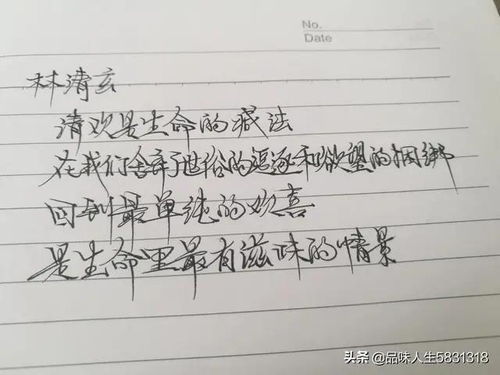 No.
Date
林清玄
清欢是生命的减法
在我们舍弃了世俗的追逐和欲望的捆绑
回到最单纯的欢喜
是生命里最有滋味的情景
头条 @品味人生5831318